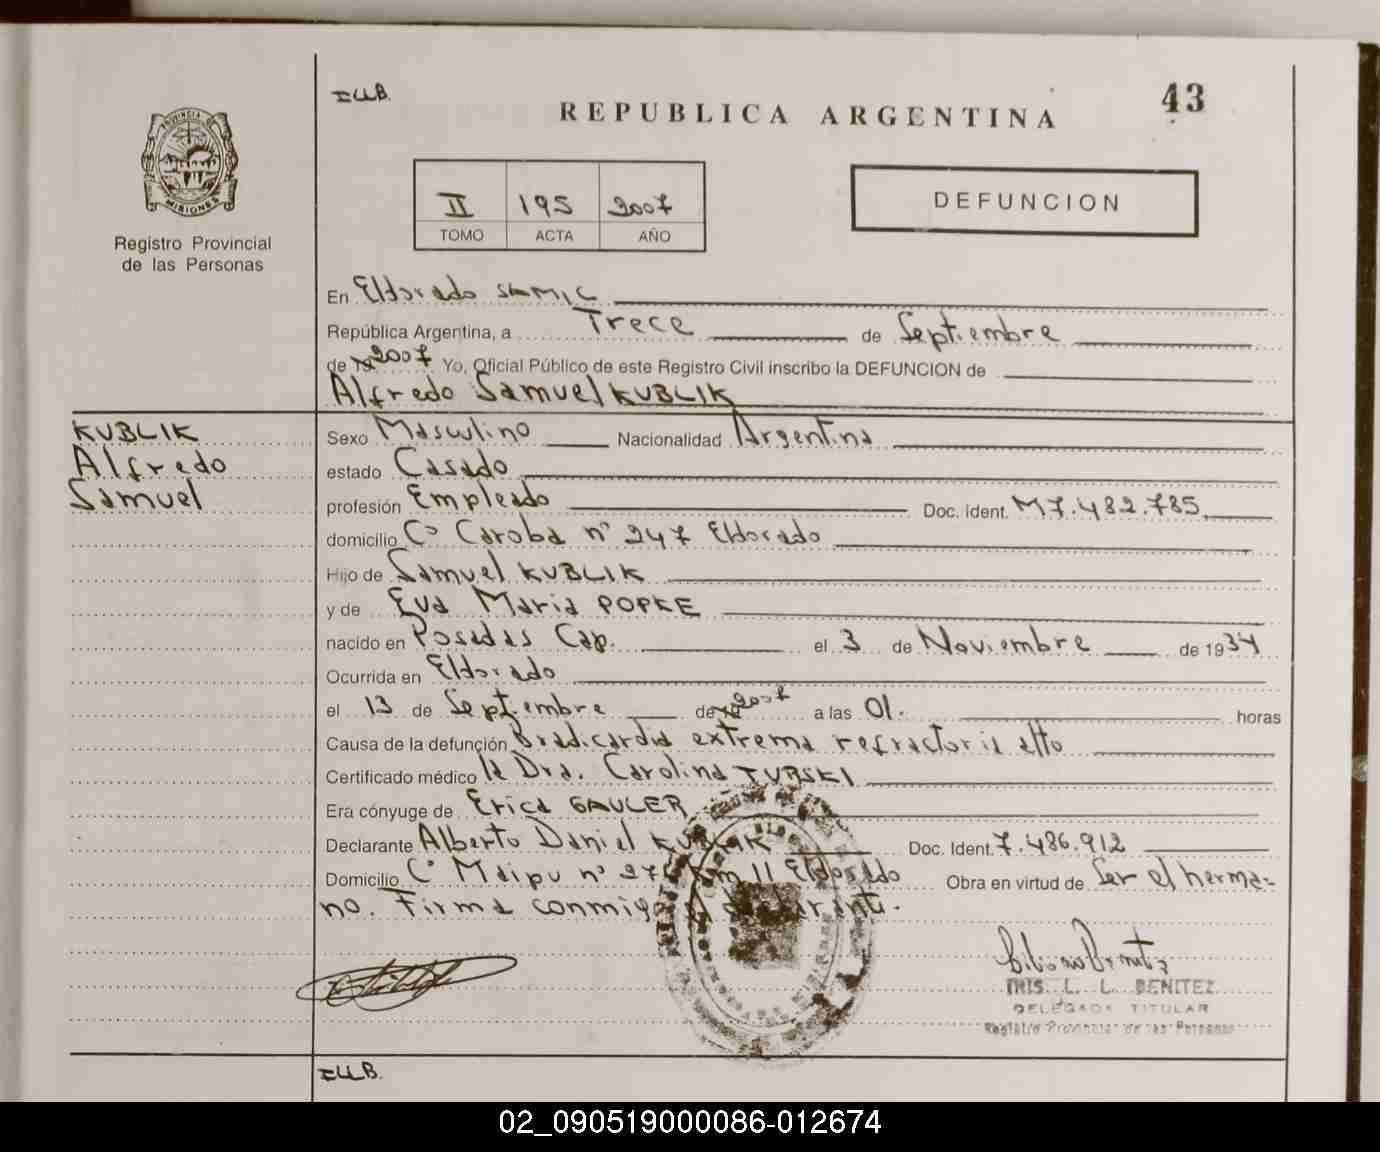 ILLB.
REPUBLICA ARGENTINA
43
PROVINCIA DE
MISIONES
Registro Provincial
de las Personas
II 195 2007
TOMO ACTA AÑO
DEFUNCION
En Eldorado SAMIC
República Argentina, a Trece de Septiembre
de 19 2007 Yo, Oficial Público de este Registro Civil inscribo la DEFUNCION de
Alfredo Samuel KUBLIK
KUBLIK
Alfredo
Samuel
Sexo Masculino Nacionalidad Argentina
estado Casado
profesión Empleado Doc. ident. M7.482.785
domicilio Cº Caroba nº 247 Eldorado
Hijo de Samuel KUBLIK
y de Eva Maria POPKE
nacido en Posadas Cap. el 3 de Noviembre de 1934
Ocurrida en Eldorado
el 13 de Septiembre de 19 2007 a las 01. horas
Causa de la defunción Bradicardia extrema refractaria atto
Certificado médico la Dra. Carolina TURSKI
Era cónyuge de Erica GAULER
Declarante Alberto Daniel KUBLIK Doc. Ident. 7.486.912
Domicilio Cº Maipu nº Km 11 Eldorado Obra en virtud de Ser el herma=
no. Firma conmigo el declarante.
IRIS L. L. BENITEZ
DELEGADA TITULAR
Registro Provincial de las Personas
ILLB.
02_090519000086-012674